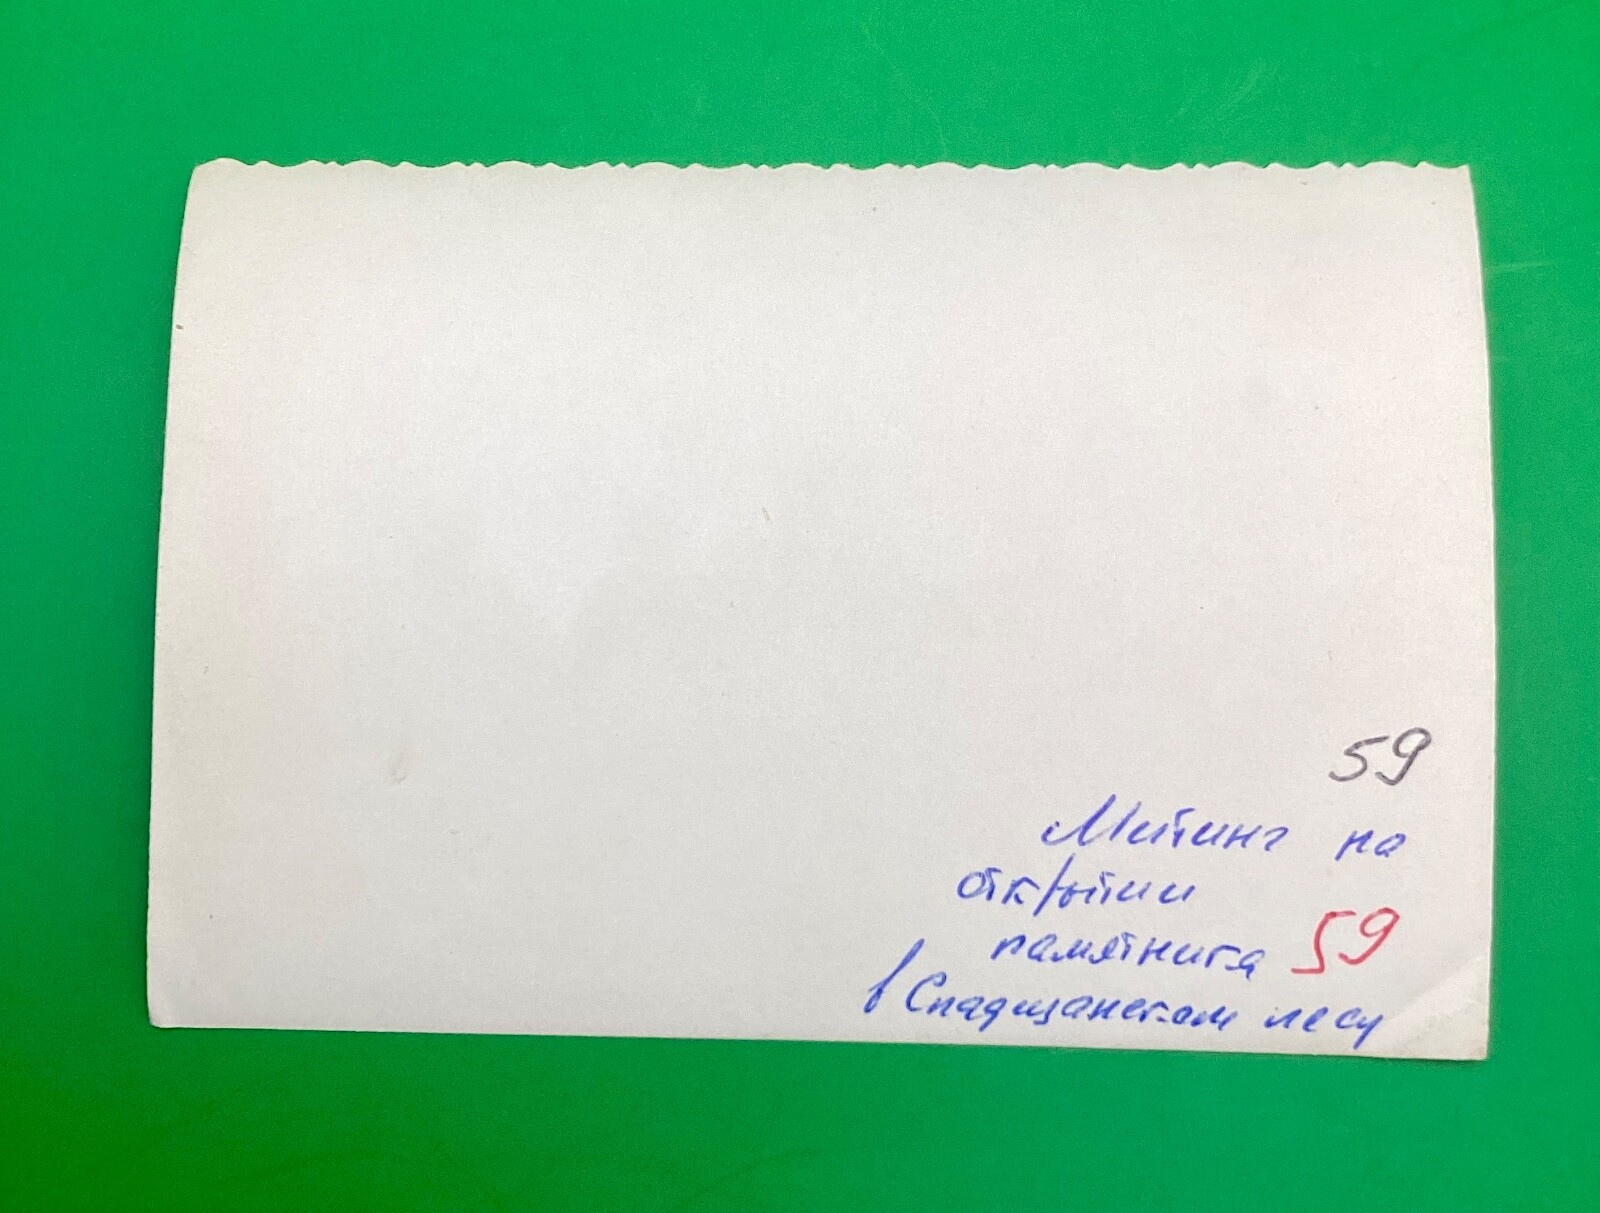 59
Митинг на
открытии
памятника 59
в Спадщанском лесу